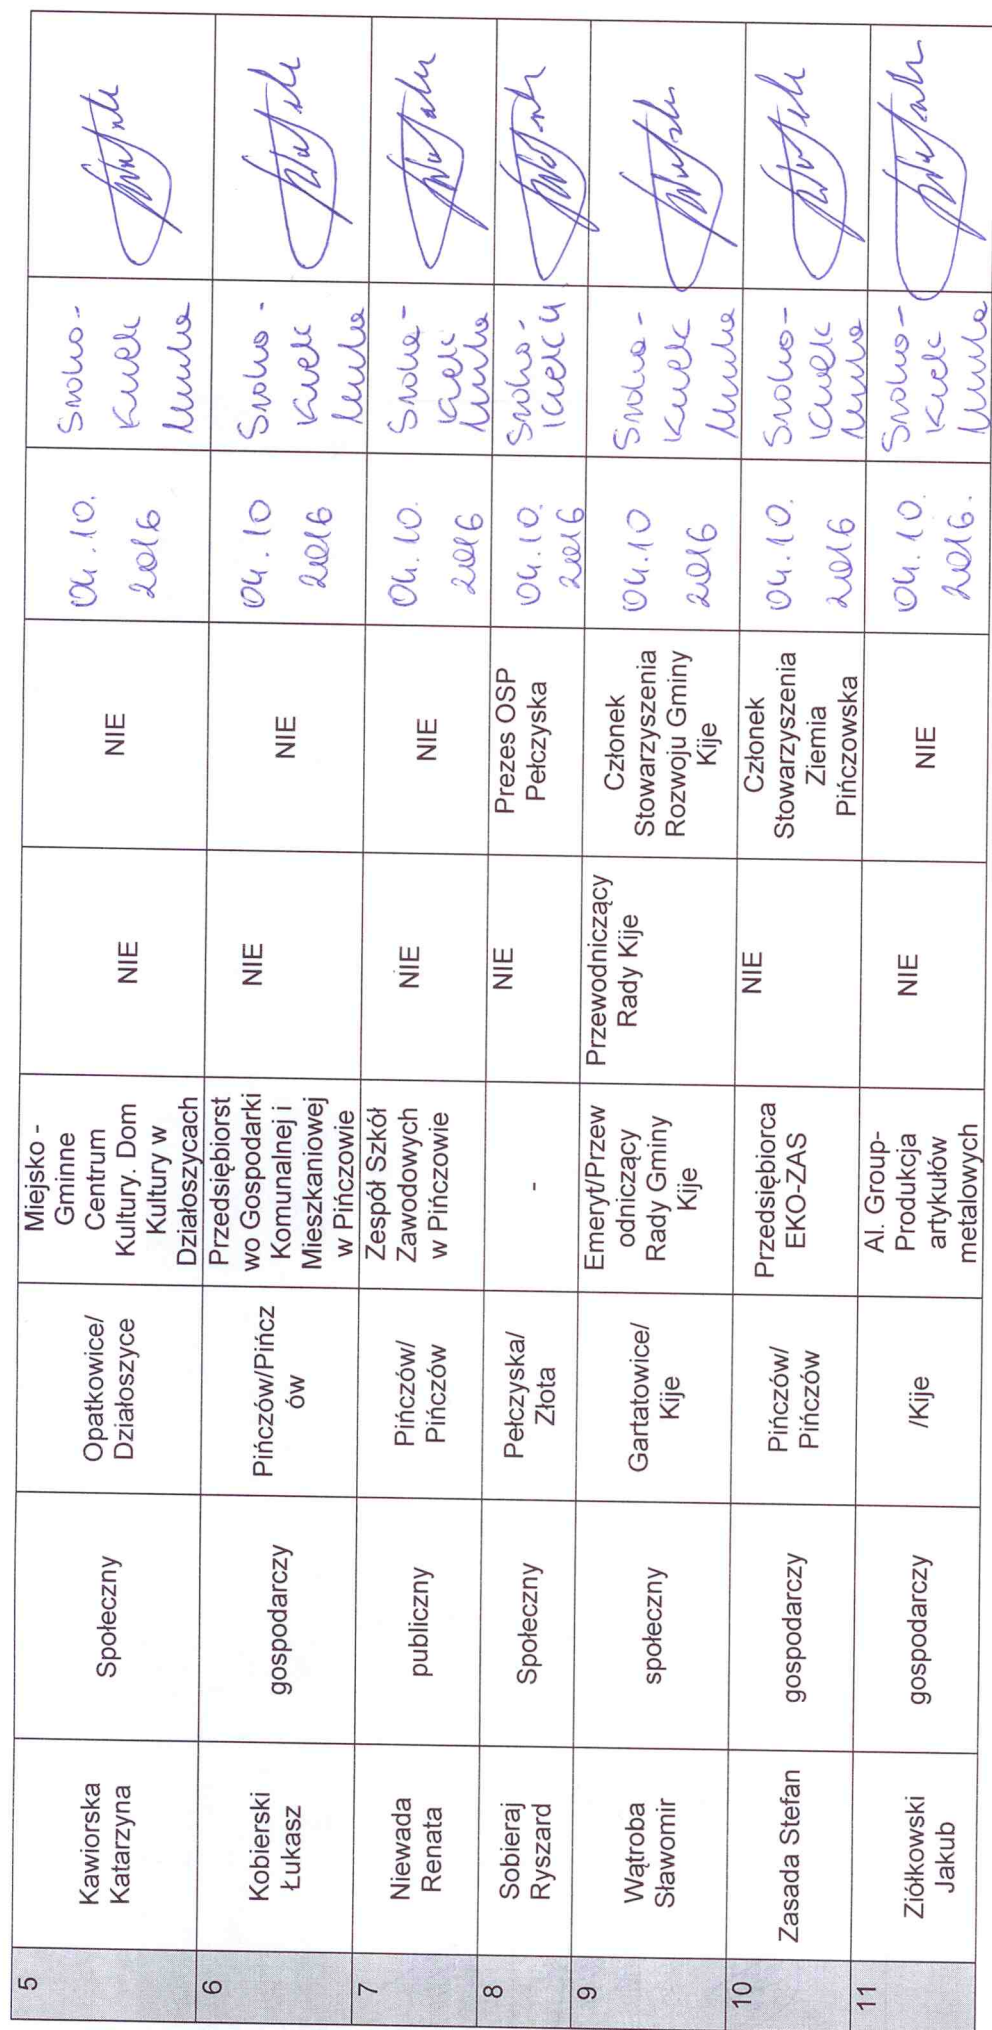 5
Kawiorska
Katarzyna
Społeczny
Opatkowice/
Działoszyce
Miejsko -
Gminne
Centrum
Kultury. Dom
Kultury w
Działoszycach
NIE
NIE
04.10.
2016
6
Kobierski
Łukasz
gospodarczy
Pińczów/Pińcz
ów
Przedsiębiorst
wo Gospodarki
Komunalnej i
Mieszkaniowej
w Pińczowie
NIE
NIE
04.10
2016
7
Niewada
Renata
publiczny
Pińczów/
Pińczów
Zespół Szkół
Zawodowych
w Pińczowie
NIE
NIE
04.10.
2016
8
Sobieraj
Ryszard
Społeczny
Pełczyska/
Złota
-
NIE
Prezes OSP
Pełczyska
04.10.
2016
9
Wątroba
Sławomir
społeczny
Gartatowice/
Kije
Emeryt/Przew
odniczący
Rady Gminy
Kije
Przewodniczący
Rady Kije
Członek
Stowarzyszenia
Rozwoju Gminy
Kije
04.10
2016
10
Zasada Stefan
gospodarczy
Pińczów/
Pińczów
Przedsiębiorca
EKO-ZAS
NIE
Członek
Stowarzyszenia
Ziemia
Pińczowska
04.10.
2016
11
Ziółkowski
Jakub
gospodarczy
/Kije
Al. Group-
Produkcja
artykułów
metalowych
NIE
NIE
04.10.
2016.